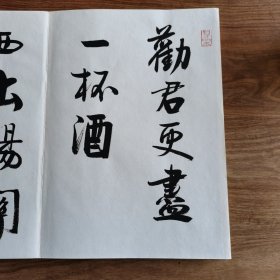 勸君更盡
一杯酒
西出陽關